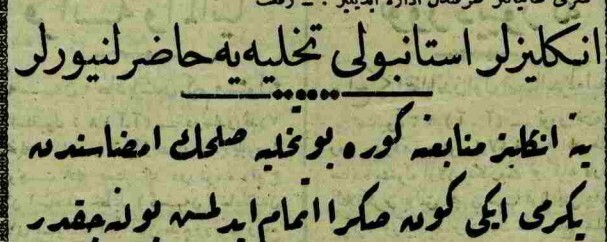 انكليزلر استانبولى تخليه‌يه حاضرلنيورلر
ينه انكليز منابعنه كوره بو تخليه صلحك امضاسندن
يكرمى ايكى كون صكرا اتمام ايدلمش بولنه‌جقدر